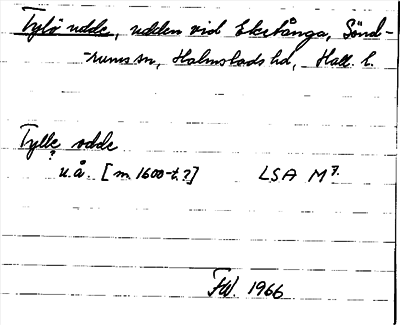 Tylö udde, udden vid Eketånga, Sönd-
-rums sn, Halmstads hd, Hall. l.
Tylle odde
u.å. [m 1600-t.?] LSA M 7.
FW. 1966